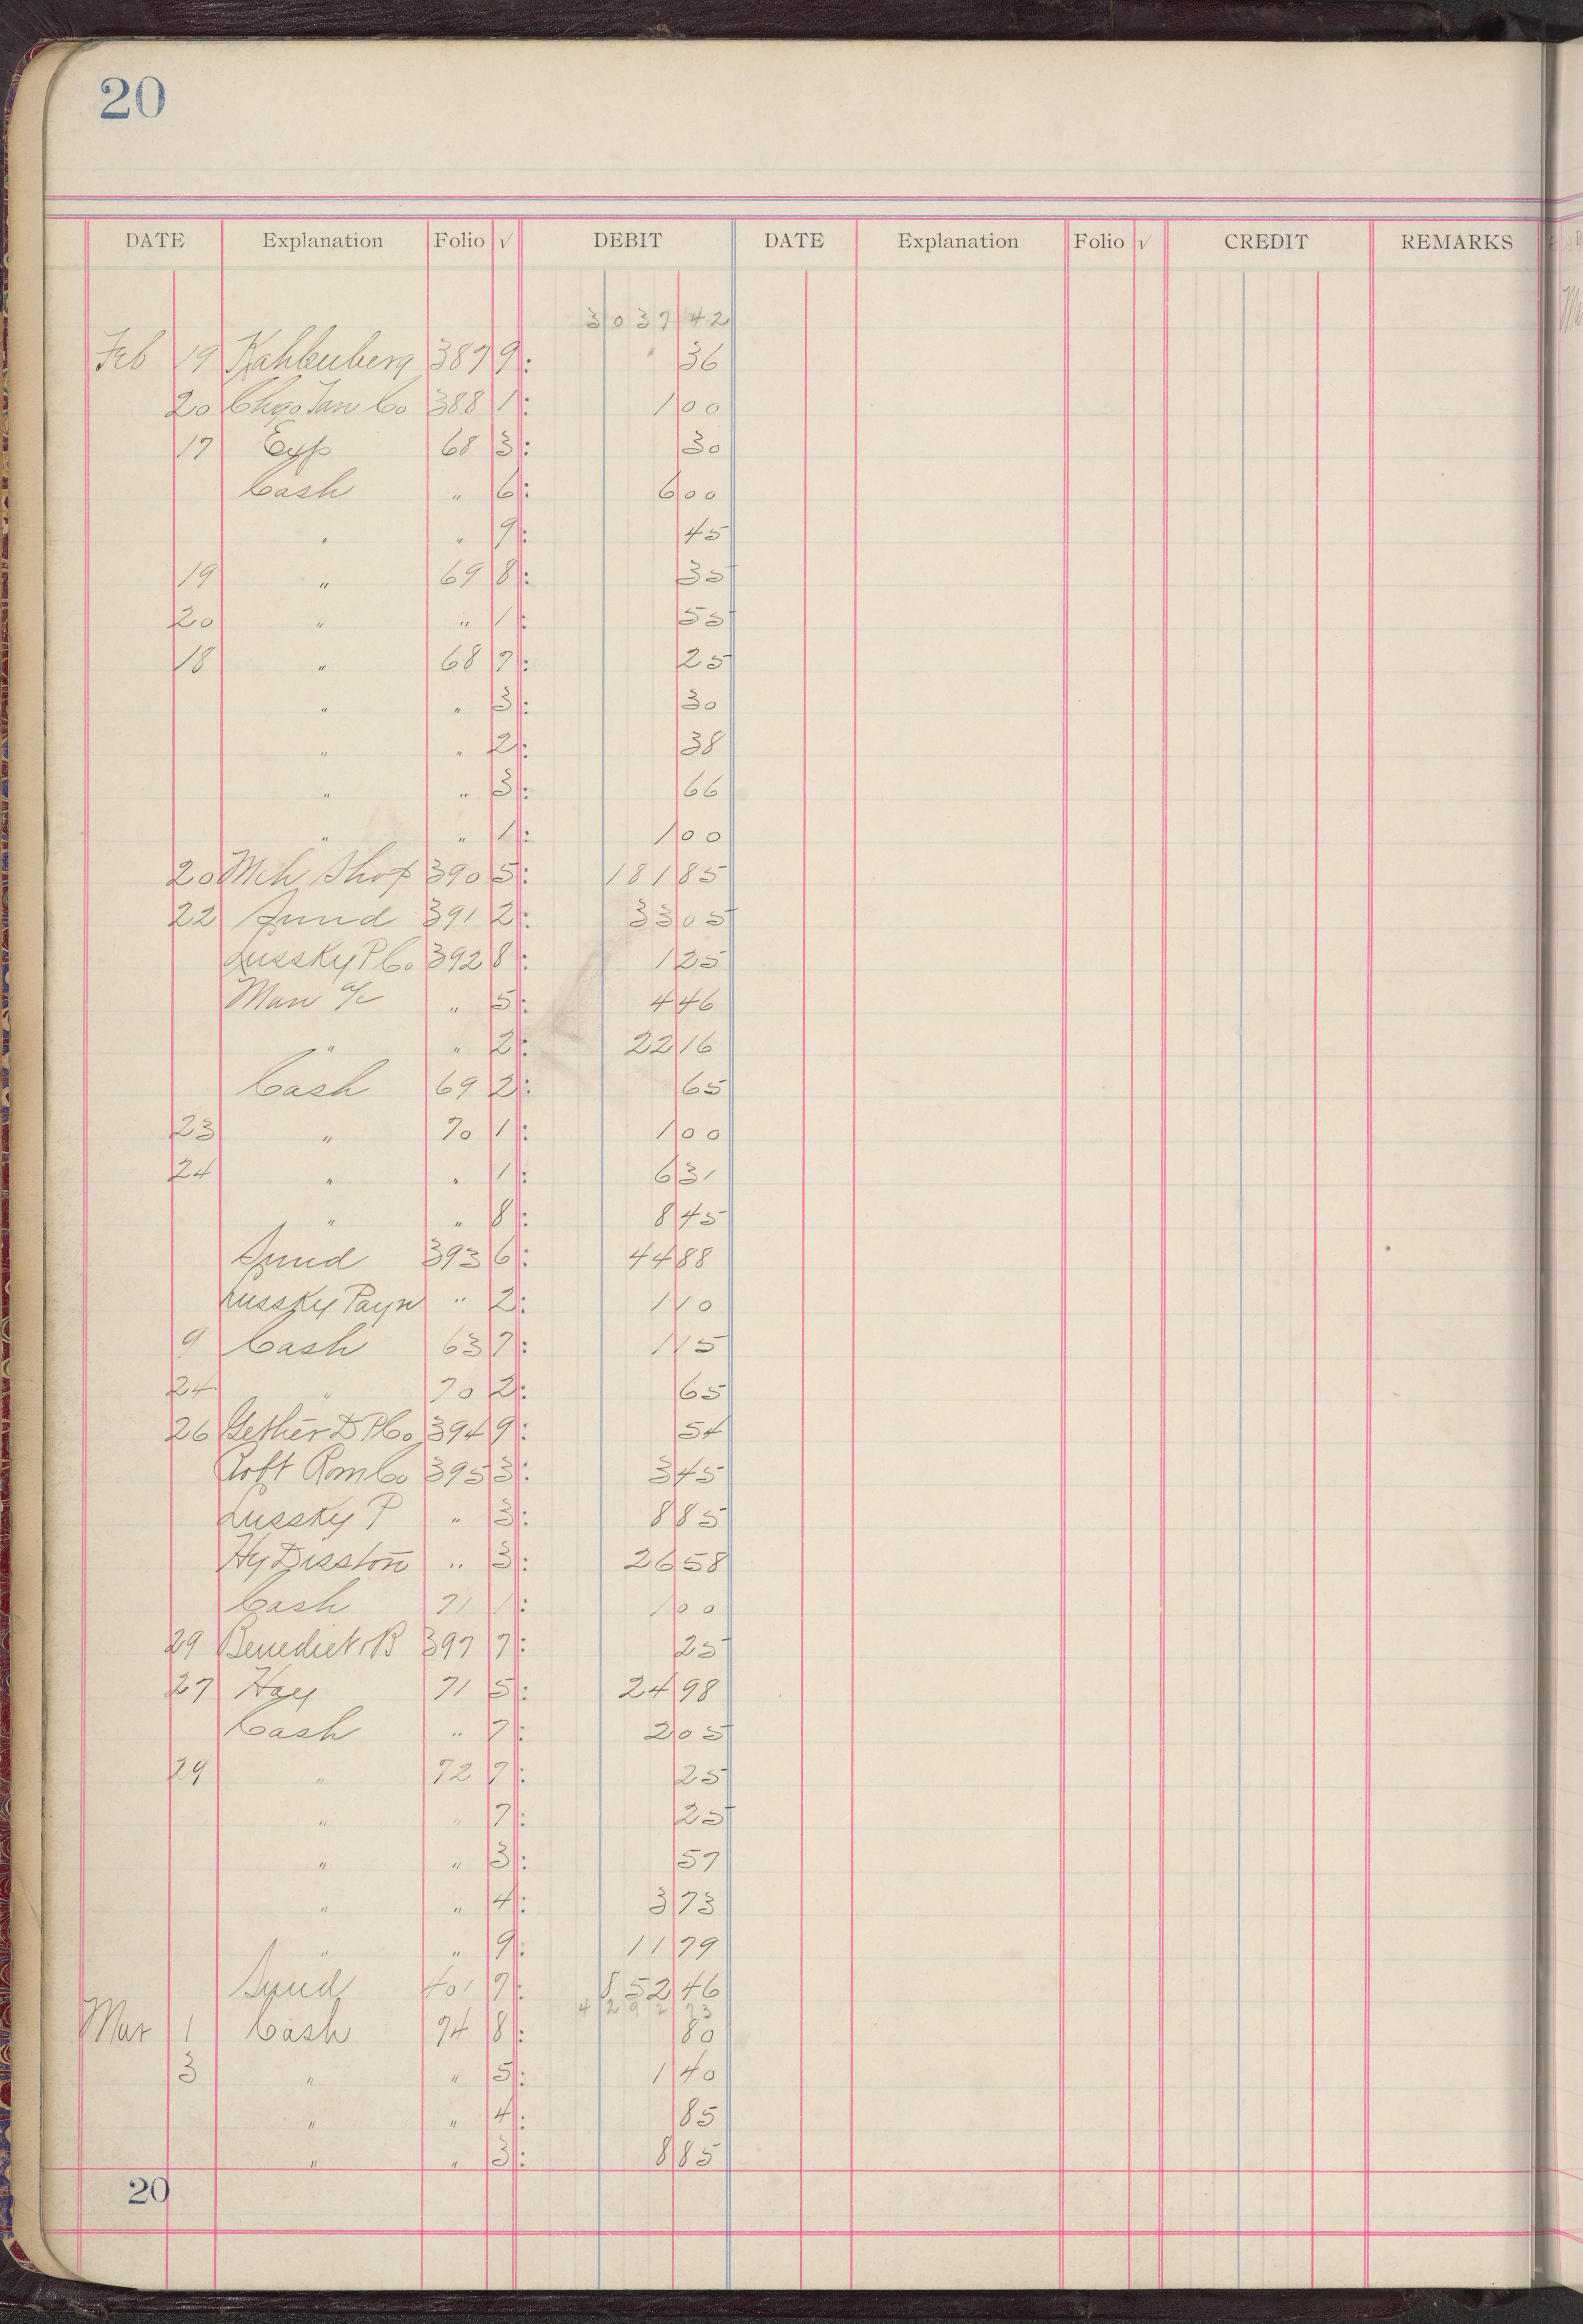 20
DATE Explanation Folio √ DEBIT DATE Explanation Folio √ CREDIT REMARKS
3037 42
Feb 19 Kahlenberg 387 9: 36
20 Chgo Tan Co 388 1: 1 00
17 Exp 68 3: 30
Cash " 6: 6 00
" " 9: 45
19 " 69 8: 35
20 " " 1: 55
18 " 68 7: 25
" " 3: 30
" " 2: 38
" " 3: 66
" " 1: 1 00
20 Mch Shop 390 5: 181 85
22 Synd 391 2: 33 05
Lussky P Co 392 8: 1 25
Man a/c " 5: 4 46
" " 2: 22 16
Cash 69 2: 65
23 " 70 1: 1 00
24 " " 1: 6 31
" " 8: 8 45
Synd 393 6: 44 88
Lussky Payn " 2: 1 10
9 Cash 63 7: 1 15
24 " 70 2: 65
26 Gether D P Co 394 9: 54
395 3: 3 45
Lussky P " 3: 8 85
Hy Disston " 3: 26 58
Cash 71 1: 1 00
29 Benedict 397 7: 25
27 Hay 71 5: 24 98
Cash " 7: 2 05
29 " 72 7: 25
" " 7: 25
" " 3: 57
" " 4: 3 73
" " 9: 11 79
Synd 401 7: 852 46
4292 73
Mar 1 Cash 74 8: 80
3 " " 5: 1 40
" " 4: 85
" " 3: 8 85
20